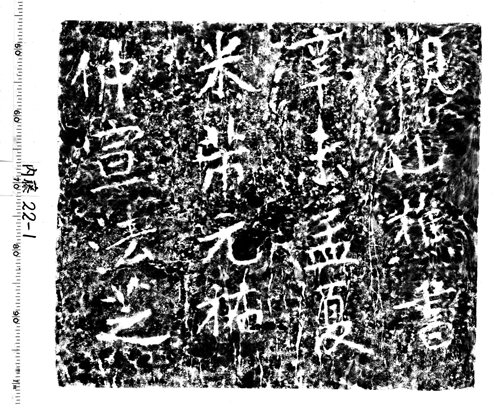 仲宣法芝
米芾元祐
辛未孟夏
觀山樵書
内藤 22-1